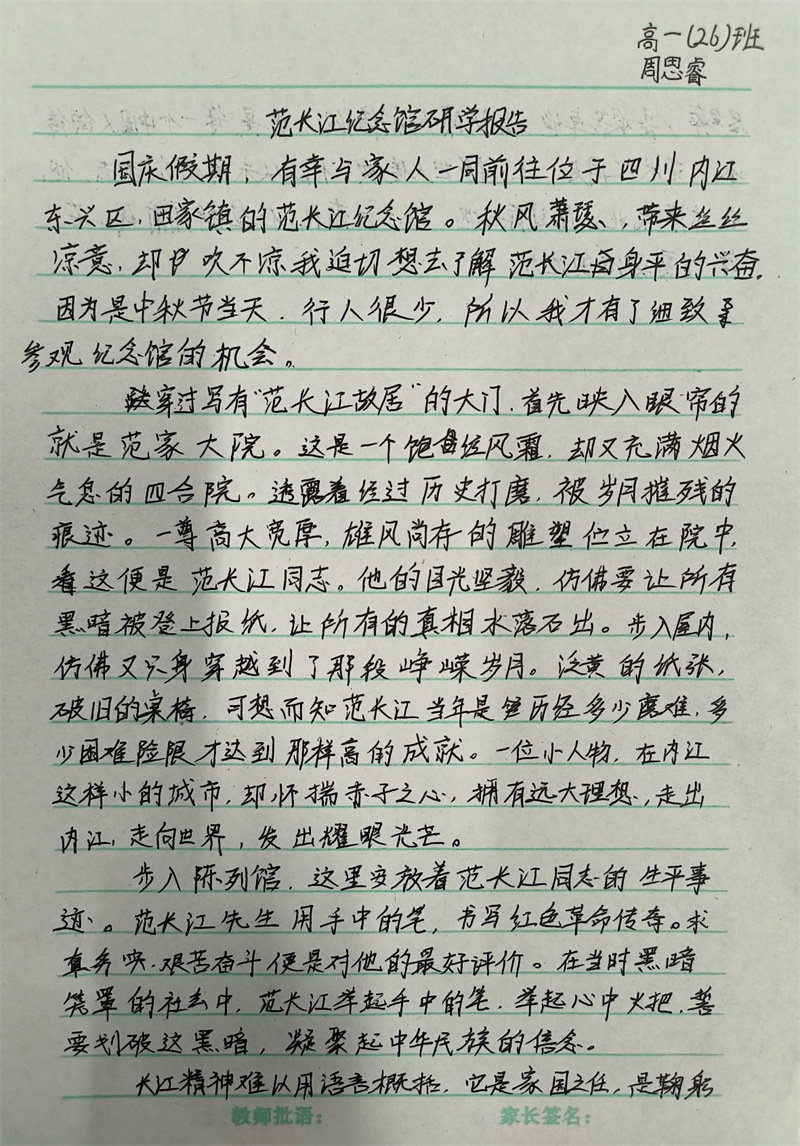 高一(26)班
周思睿
范长江纪念馆研学报告
国庆假期，有幸与家人一同前往位于四川内江
东兴区，田家镇的范长江纪念馆。秋风萧瑟，带来丝丝
凉意，却吹不凉我迫切想去了解范长江身平的兴奋。
因为是中秋节当天，行人很少，所以我才有了细致
参观纪念馆的机会。
穿过写有“范长江故居”的大门，首先映入眼帘的
就是范家大院。这是一个饱经风霜，却又充满烟火
气息的四合院。透露着经过历史打磨，被岁月摧残的
痕迹。一尊高大宽厚，雄风尚存的雕塑伫立在院中，
这便是范长江同志。他的目光坚毅，仿佛要让所有
黑暗被登上报纸，让所有的真相水落石出。步入屋内，
仿佛又只身穿越到了那段峥嵘岁月。泛黄的纸张，
破旧的桌椅，可想而知范长江当年是历经多少磨难，多
少困难险限才达到那样高的成就。一位小人物，在内江
这样小的城市，却怀揣赤子之心，拥有远大理想，走出
内江，走向世界，发出耀眼光芒。
步入陈列馆，这里安放着范长江同志的生平事
迹。范长江先生用手中的笔，书写红色革命传奇。求
真务实，艰苦奋斗便是对他的最好评价。在当时黑暗
笼罩的社会中，范长江举起手中的笔，举起心中火把，誓
要划破这黑暗，凝聚起中华民族的信念。
长江精神难以用语言概括，它是家国之任，是鞠躬
教师批语：
家长签名：